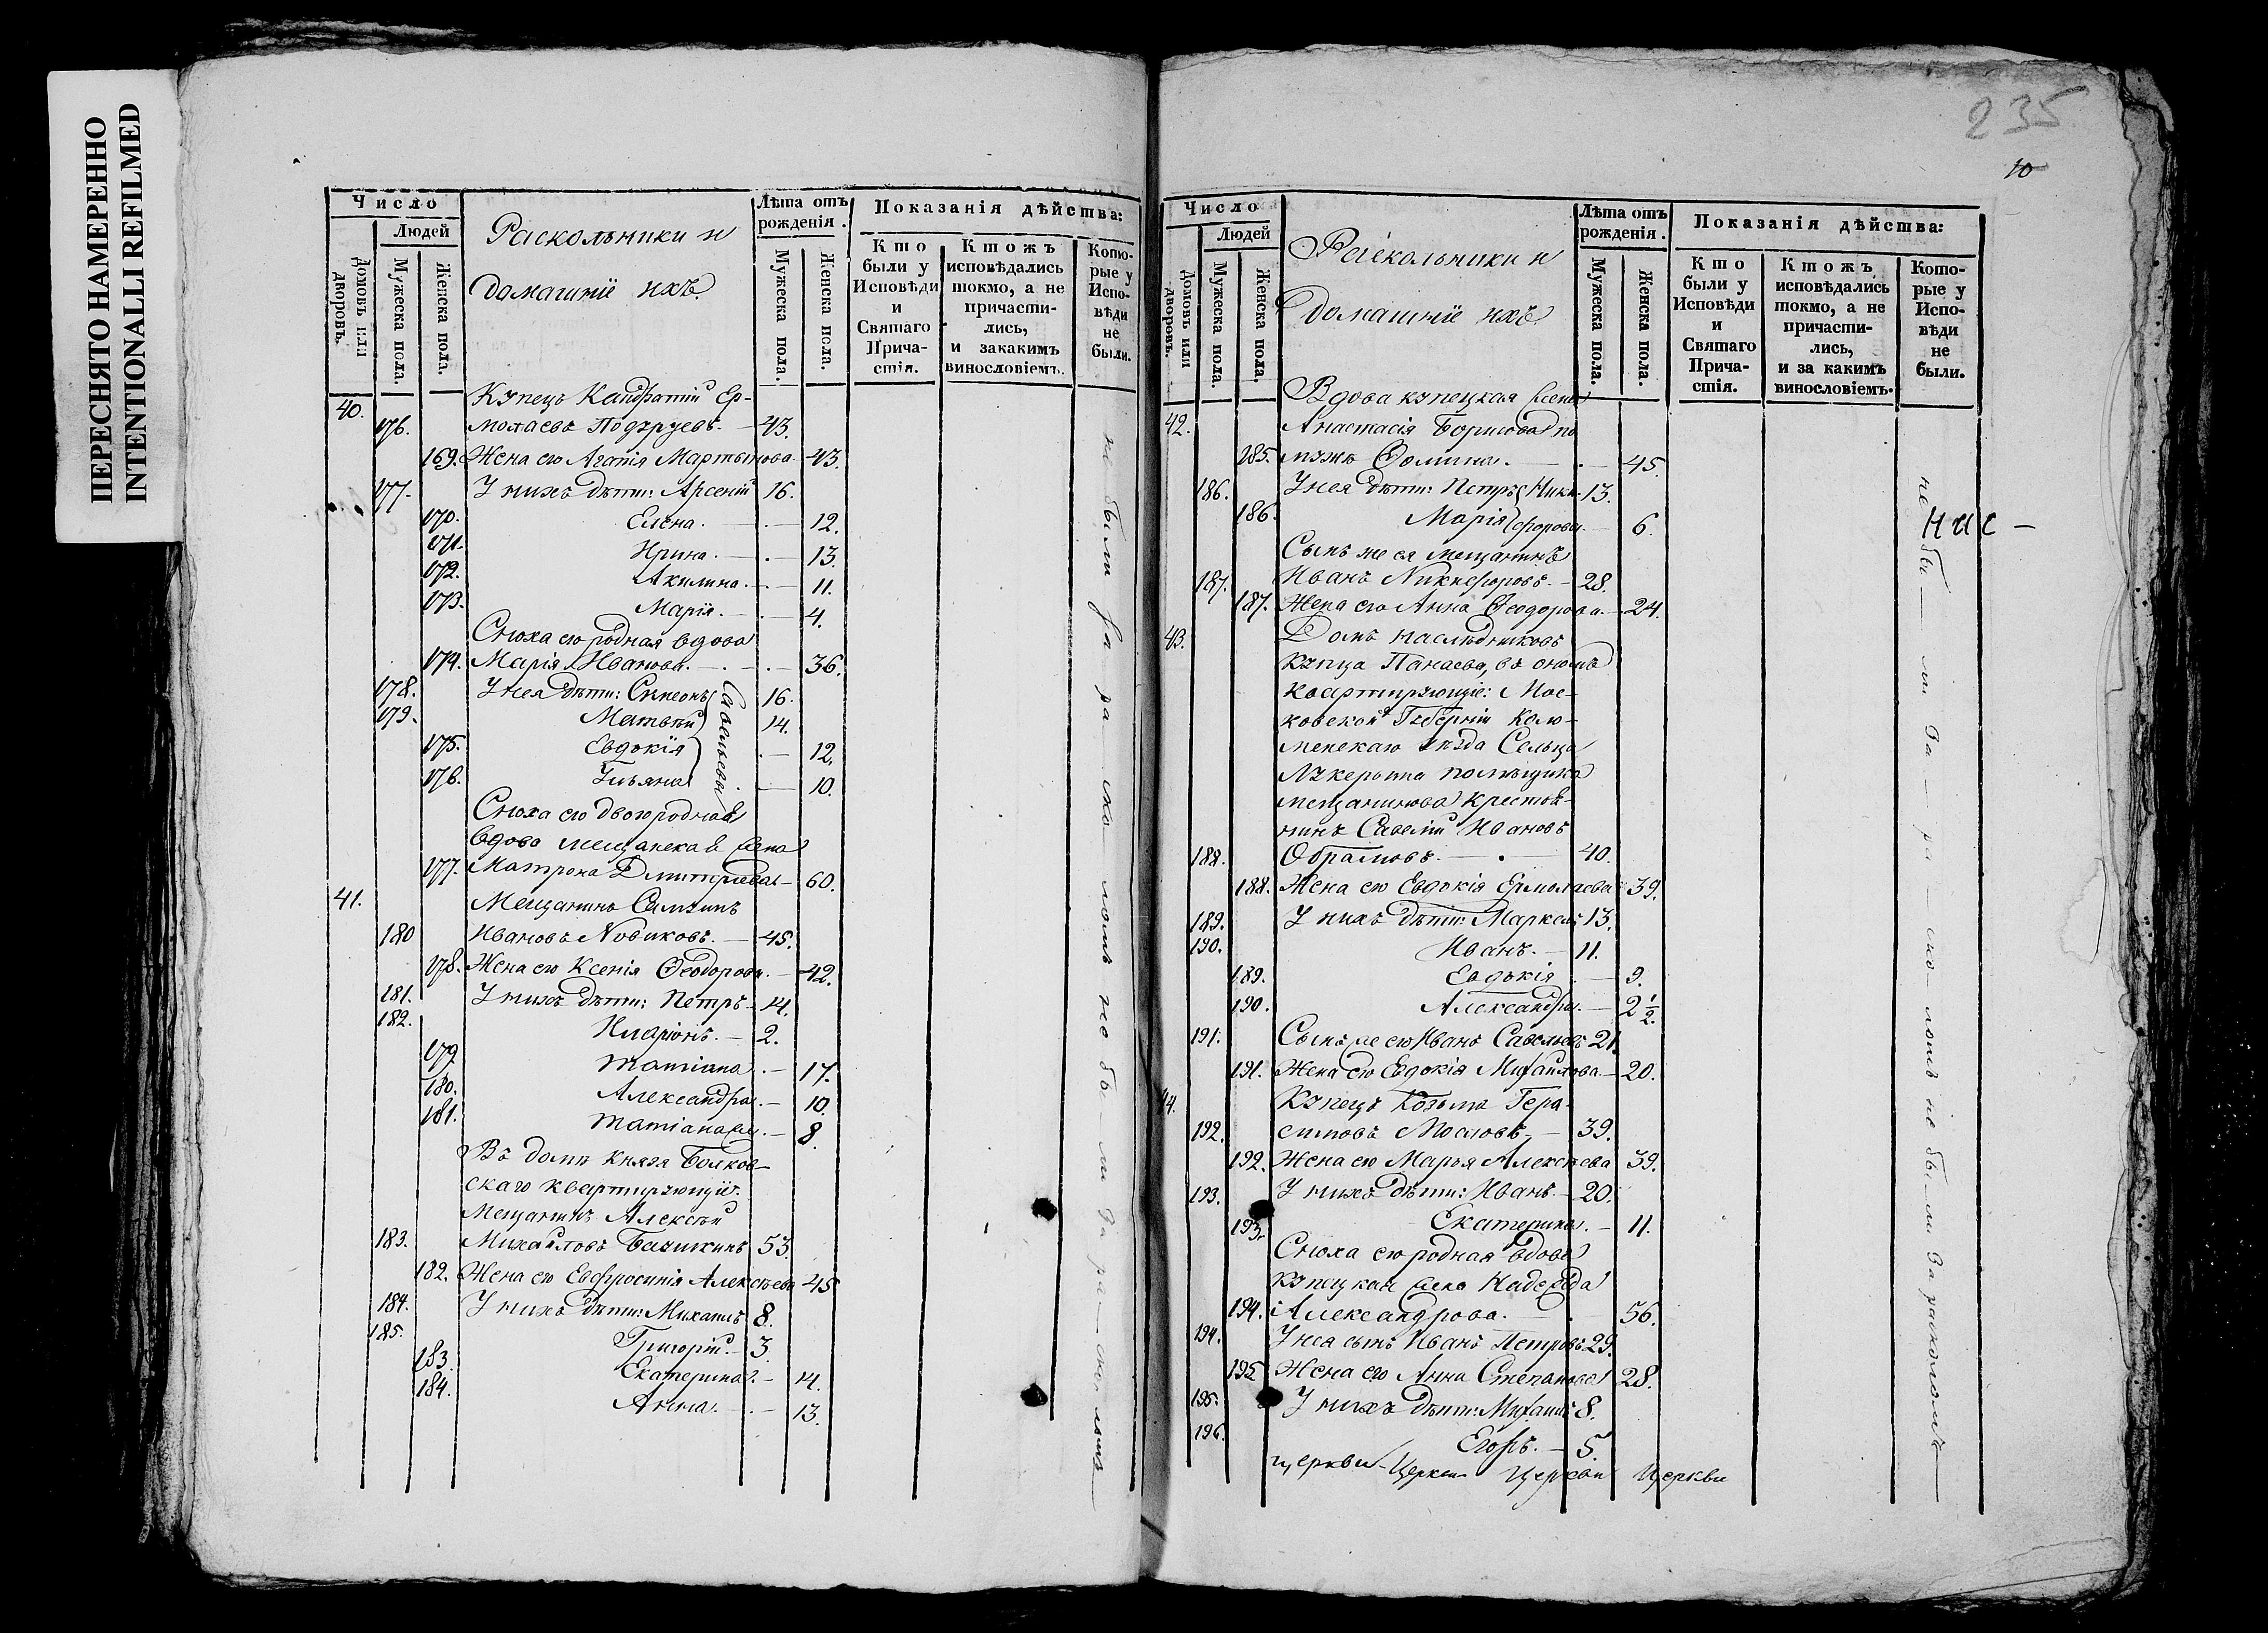 ПЕРЕСНЯТО НАМЕРЕННО
INTENTIONALLI REFILMED
Число
Людей
Домовъ или дворовъ.
Мужеска пола.
Женска пола.
Раскольники и
домашнiе ихъ.
Лѣта отъ рожденiя.
Мужеска пола.
Женска пола.
Показанiя дѣйства:
Кто были у Исповѣди и Святаго Причастiя.
Ктожъ исповѣдались токмо, а не причастились, и закакимъ винословiемъ.
Которые у Исповѣди не были.
40. Купецъ Кандратiй Ер-
176. молаевъ Подгруевъ. — 43.
169. Жена его Агапiя Мартынова — 43.
177. У нихъ дѣти: Арсенiй 16.
170. Елена. — 12.
171. Ирина. — 13.
172. Акилина. — 11.
173. Марiя. — 4.
Сноха его родная вдова
174. Марiя Иванова. — 36.
178. У нея дѣти: Симеонъ 16.
179. Матвѣй 14.
175. Евдокiя — 12.
176. Ульяна — 10.
Савельевы
Сноха его двоюродная
вдова мещанская жена
177. Матрона Дмитрiева — 60.
41. Мещанинъ Самуилъ
180 Ивановъ Новиковъ. — 45.
178. Жена его Ксенiя Ѳеодорова. — 42.
181. У нихъ дѣти: Петръ — 14.
182. Иларiонъ. — 2.
179. Татiана. — 17.
180. Александра. — 10.
181. Татiана же. — 8.
Въ домѣ Князя Волкон-
скаго квартирующiе:
Мещанинъ Алексѣй
183. Михайловъ 53.
182. Жена его Евфросинiя Алексѣева 45
184. У нихъ дѣти: Михаилъ 8.
185. Григорiй. — 3.
183. Екатерина. — 14.
184. Анна. — 13.
не были за раскольомъ не были за раскольомъ
235
10
Число
Людей
Домовъ или дворовъ.
Мужеска пола.
Женска пола.
Раскольники и
домашнiе ихъ.
Лѣта отъ рожденiя.
Мужеска пола.
Женска пола.
Показанiя дѣйства:
Кто были у Исповѣди и Святаго Причастiя.
Ктожъ исповѣдались токмо, а не причастились, и за какимъ винословiемъ.
Которые у Исповѣди не были.
42. Вдова купецкая жена
Анастасiя Борисова по
185. мужѣ Ѳомина. — 45.
186. У нея дѣти: Петръ Ники- 13.
186. Марiя форовы. — 6.
Сынъ же ея мещанинъ
187. Иванъ Никифоровъ. — 28.
187. Жена его Анна Ѳеодорова. — 24.
43. Домъ наслѣдниковъ
купца Панаева, въ ономъ
квартирующiе: Мос-
ковской Губернiи Коло-
менскаго уѣзда Сельца
помѣщика
Мещанинова крестья-
нинъ Савелiй Ивановъ
188. Обрамовъ. — 40.
188. Жена его Евдокiя Ермолаева 39.
189. У нихъ дѣти: Маркелъ 13.
190. Иванъ. — 11.
189. Евдокiя — 9.
190. Александра. — 2 1/2.
191. Сынъ же его Иванъ Савельевъ 21.
191. Жена его Евдокiя Михайлова — 20.
44. Купецъ Козьма Гера-
192. симовъ — 39.
192. Жена его Марья Алексѣева 39.
193. У нихъ дѣти: Иванъ — 20.
193. Екатерина. — 11.
Сноха его родная вдова
купецкая жена Надежда
194. Александрова. — 56.
194. У нея сынъ Иванъ Петровъ 29.
195 Жена его Анна Степанова 28.
195. У нихъ дѣти: Михаилъ 8.
196. Егоръ. — 5.
церкви Церкви Церкви Церкви
не бы — ли За — ра — ско — ломъ не бы — ли За расколомъ
нис —